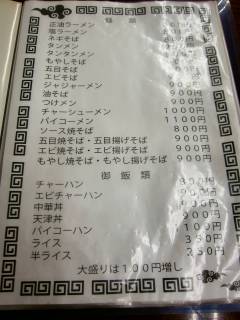 麺類
正油ラーメン
塩ラーメン
ネギそば
タンメン
タンタンメン
もやしそば
五目そば
エビそば
ジャジャーメン 900円
油そば 900円
つけメン 900円
チャーシューメン 1000円
パイコーメン 1100円
ソース焼そば 800円
五目焼そば・五目揚げそば 900円
エビ焼そば・エビ揚げそば 900円
もやし焼そば・もやし揚げそば 900円
御飯類
チャーハン
エビチャーハン
中華丼
天津丼 900円
パイコーハン
ライス
半ライス
大盛りは100円増し